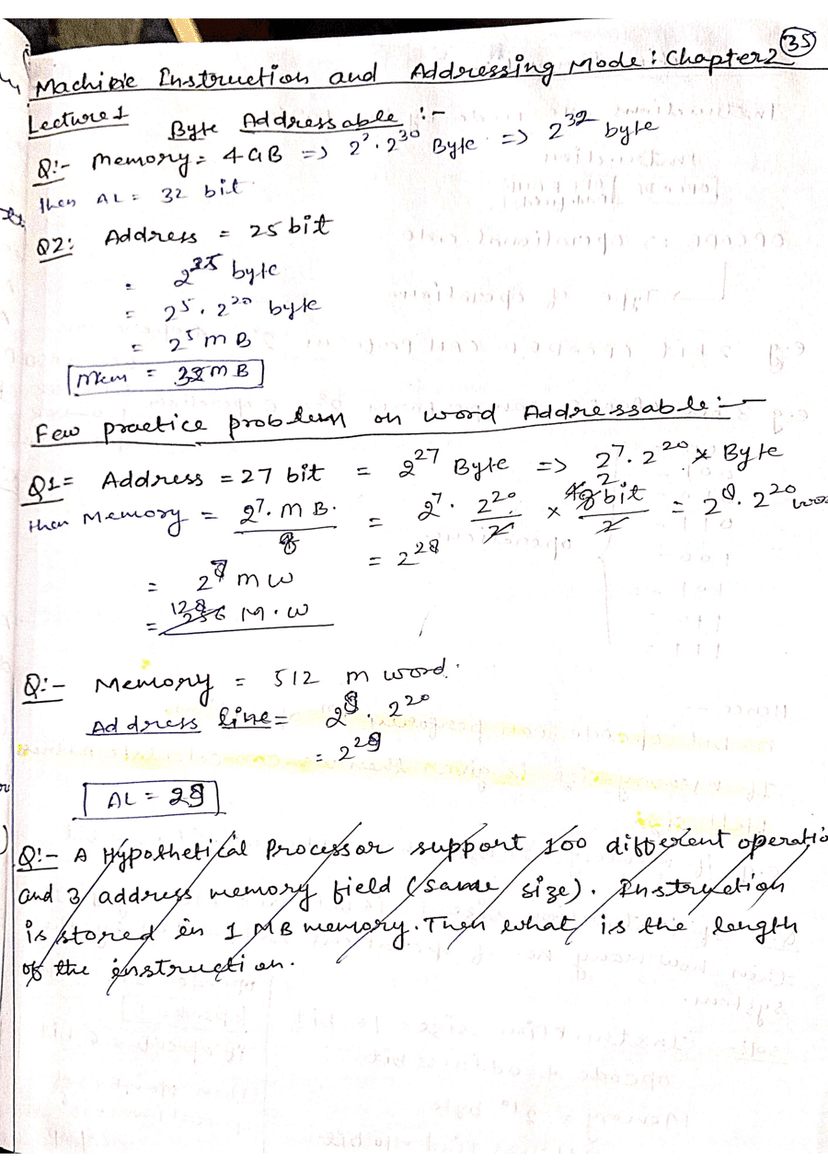 35
Machine Instruction and Addressing Mode: Chapter 2
Lecture 1
Byte Addressable :-
Q:- Memory = 4GB => 2². 2³⁰ Byte => 2³² byte
then AL = 32 bit.
Q2: Address = 25 bit
= 2²⁵ byte
= 2⁵. 2²⁰ byte
= 2⁵ MB
Mem = 32 MB
Few practice problem on word Addressable:-
Q1= Address = 27 bit = 2²⁷ Byte => 2⁷. 2²⁰ x Byte
then Memory = 2⁷. MB. / 8 = 2⁷. 2²⁰ / 2 x bit / 2 = 2⁸. 2²⁰
= 2²⁸
= 2⁷ MW
= 128 M.W
Q:- Memory = 512 M word.
Address line = 2⁹. 2²⁰
= 2²⁹
AL = 29
Q:- A Hypothetical Processor support 100 different operatio
and 3 address memory field (same size). Instruction
is stored in 1 MB memory. Then what is the length
of the instruction.